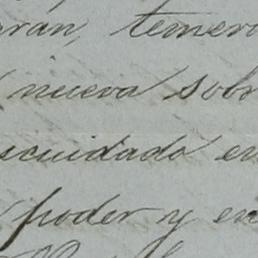 aran, temero
nueva sobr
scuidado en
poder y en